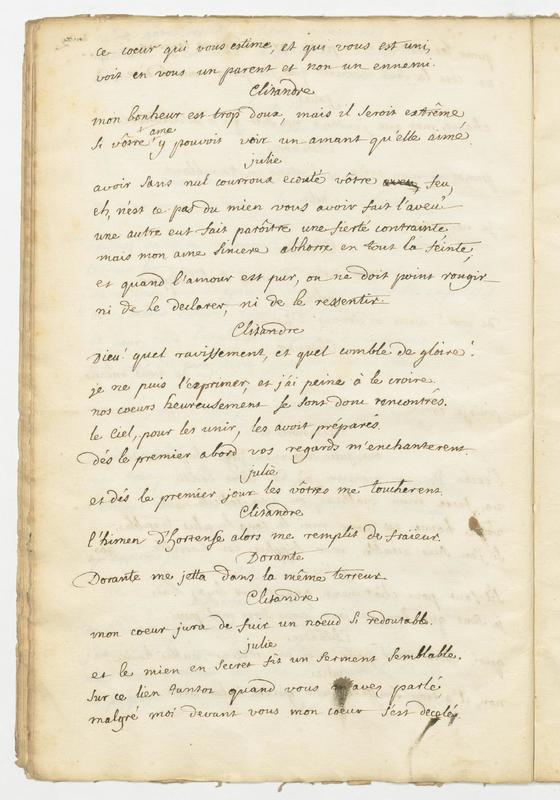 ce coeur qui vous estime, et qui vous est uni,
voit en vous un parent et non un ennemi.
Clitandre
mon bonheur est trop doux, mais il seroit extrême
si vôtre ame y pouvoit voir un amant qu'elle aime.
julie
avoir sans nul courroux ecouté vôtre aveu, feu,
eh, n'est ce pas du mien vous avoir fait l'aveu?
une autre eut fait paroître une fierté contrainte
mais mon ame sincere abhorre en tout la feinte,
et quand l'amour est pur, on ne doit point rougir
ni de le declarer, ni de le ressentir.
Clitandre
Dieu! quel ravissement, et quel comble de gloire!
je ne puis l'exprimer, et j'ai peine à le croire.
nos coeurs heureusement se sont donc rencontrés.
le Ciel, pour les unir, les avoit préparés.
dés le premier abord vos regards m'enchanterent
julie
et dés le premier jour les vôtres me toucherent.
Clitandre
l'himen d'hortense alors me remplit de fraieur.
Dorante
Dorante me jetta dans la même terreur
Clitandre
mon coeur jura de fuir un noeud si redoutable.
julie
et le mien en secret fit un serment semblable.
sur ce lien tantot quand vous avez parlé,
malgré moi devant vous mon coeur s'est decelé,